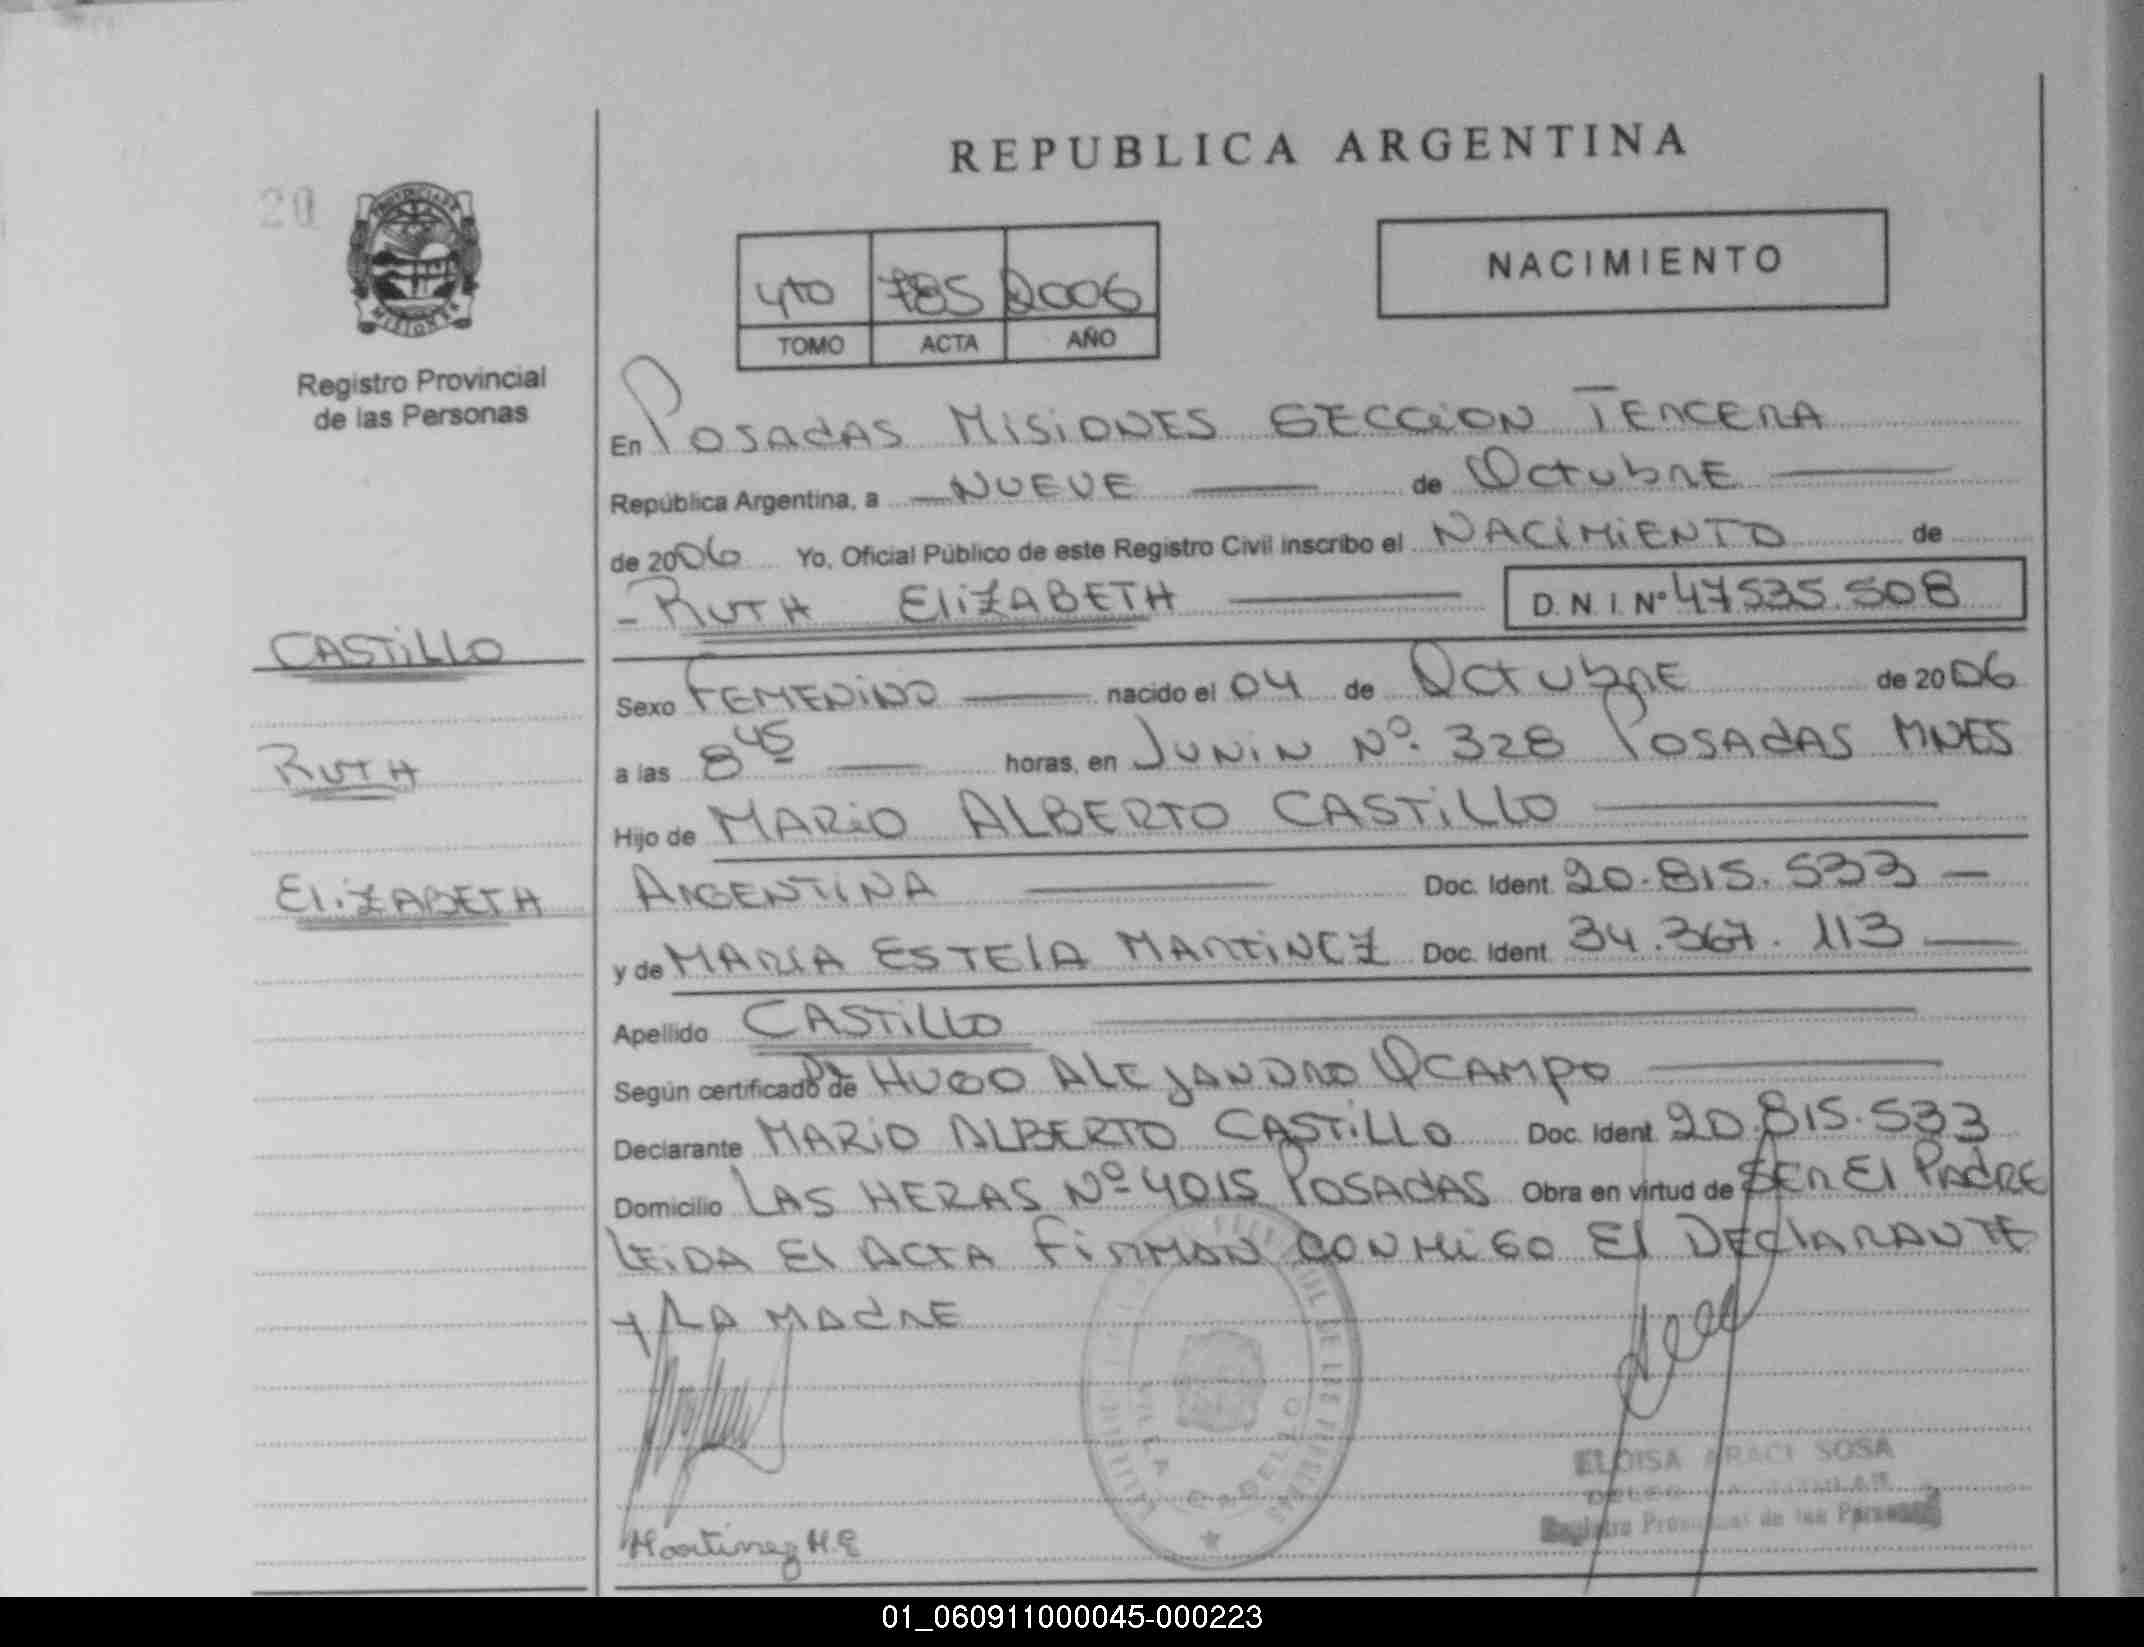 REPUBLICA ARGENTINA
20
PROVINCIA DE
MISIONES
Registro Provincial
de las Personas
4to 785 2006
TOMO ACTA AÑO
NACIMIENTO
En POSAdAS MISiONES SECCiON TERCERA
República Argentina, a NUEVE de OctubRE
de 2006 Yo, Oficial Público de este Registro Civil inscribo el NACiMiENTO de
- RUTH EliZABETH D.N.I. Nº 47.535.508
CASTiLLO
Sexo FEMENiNO nacido el 04 de OctubRE de 2006
RUTH
a las 8 45 horas, en JUNiN Nº. 328 POSAdAS MNES
Hijo de MARiO ALBERTO CASTiLLO
EliZABETH
ARGENTINA Doc. Ident 20.815.533
y de MARIA ESTElA MARTiNEZ Doc. Ident 34.367.113
Apellido CASTiLLO
Según certificado de Dr HUGO ALEjANDRO OCAMPO
Declarante MARiO ALBERTO CASTiLLO Doc. Ident 20.815.533
Domicilio LAS HERAS Nº 4015 POSAdAS Obra en virtud de SER El PAdRE
LEiDA El ACTA FiRMAN CONMiGO El DEClARANTE
y LA MAdRE
VILLA CABELLO
ELOISA ARACI SOSA
Registro Provincial de las Personas
Martinez M.E
01_060911000045-000223